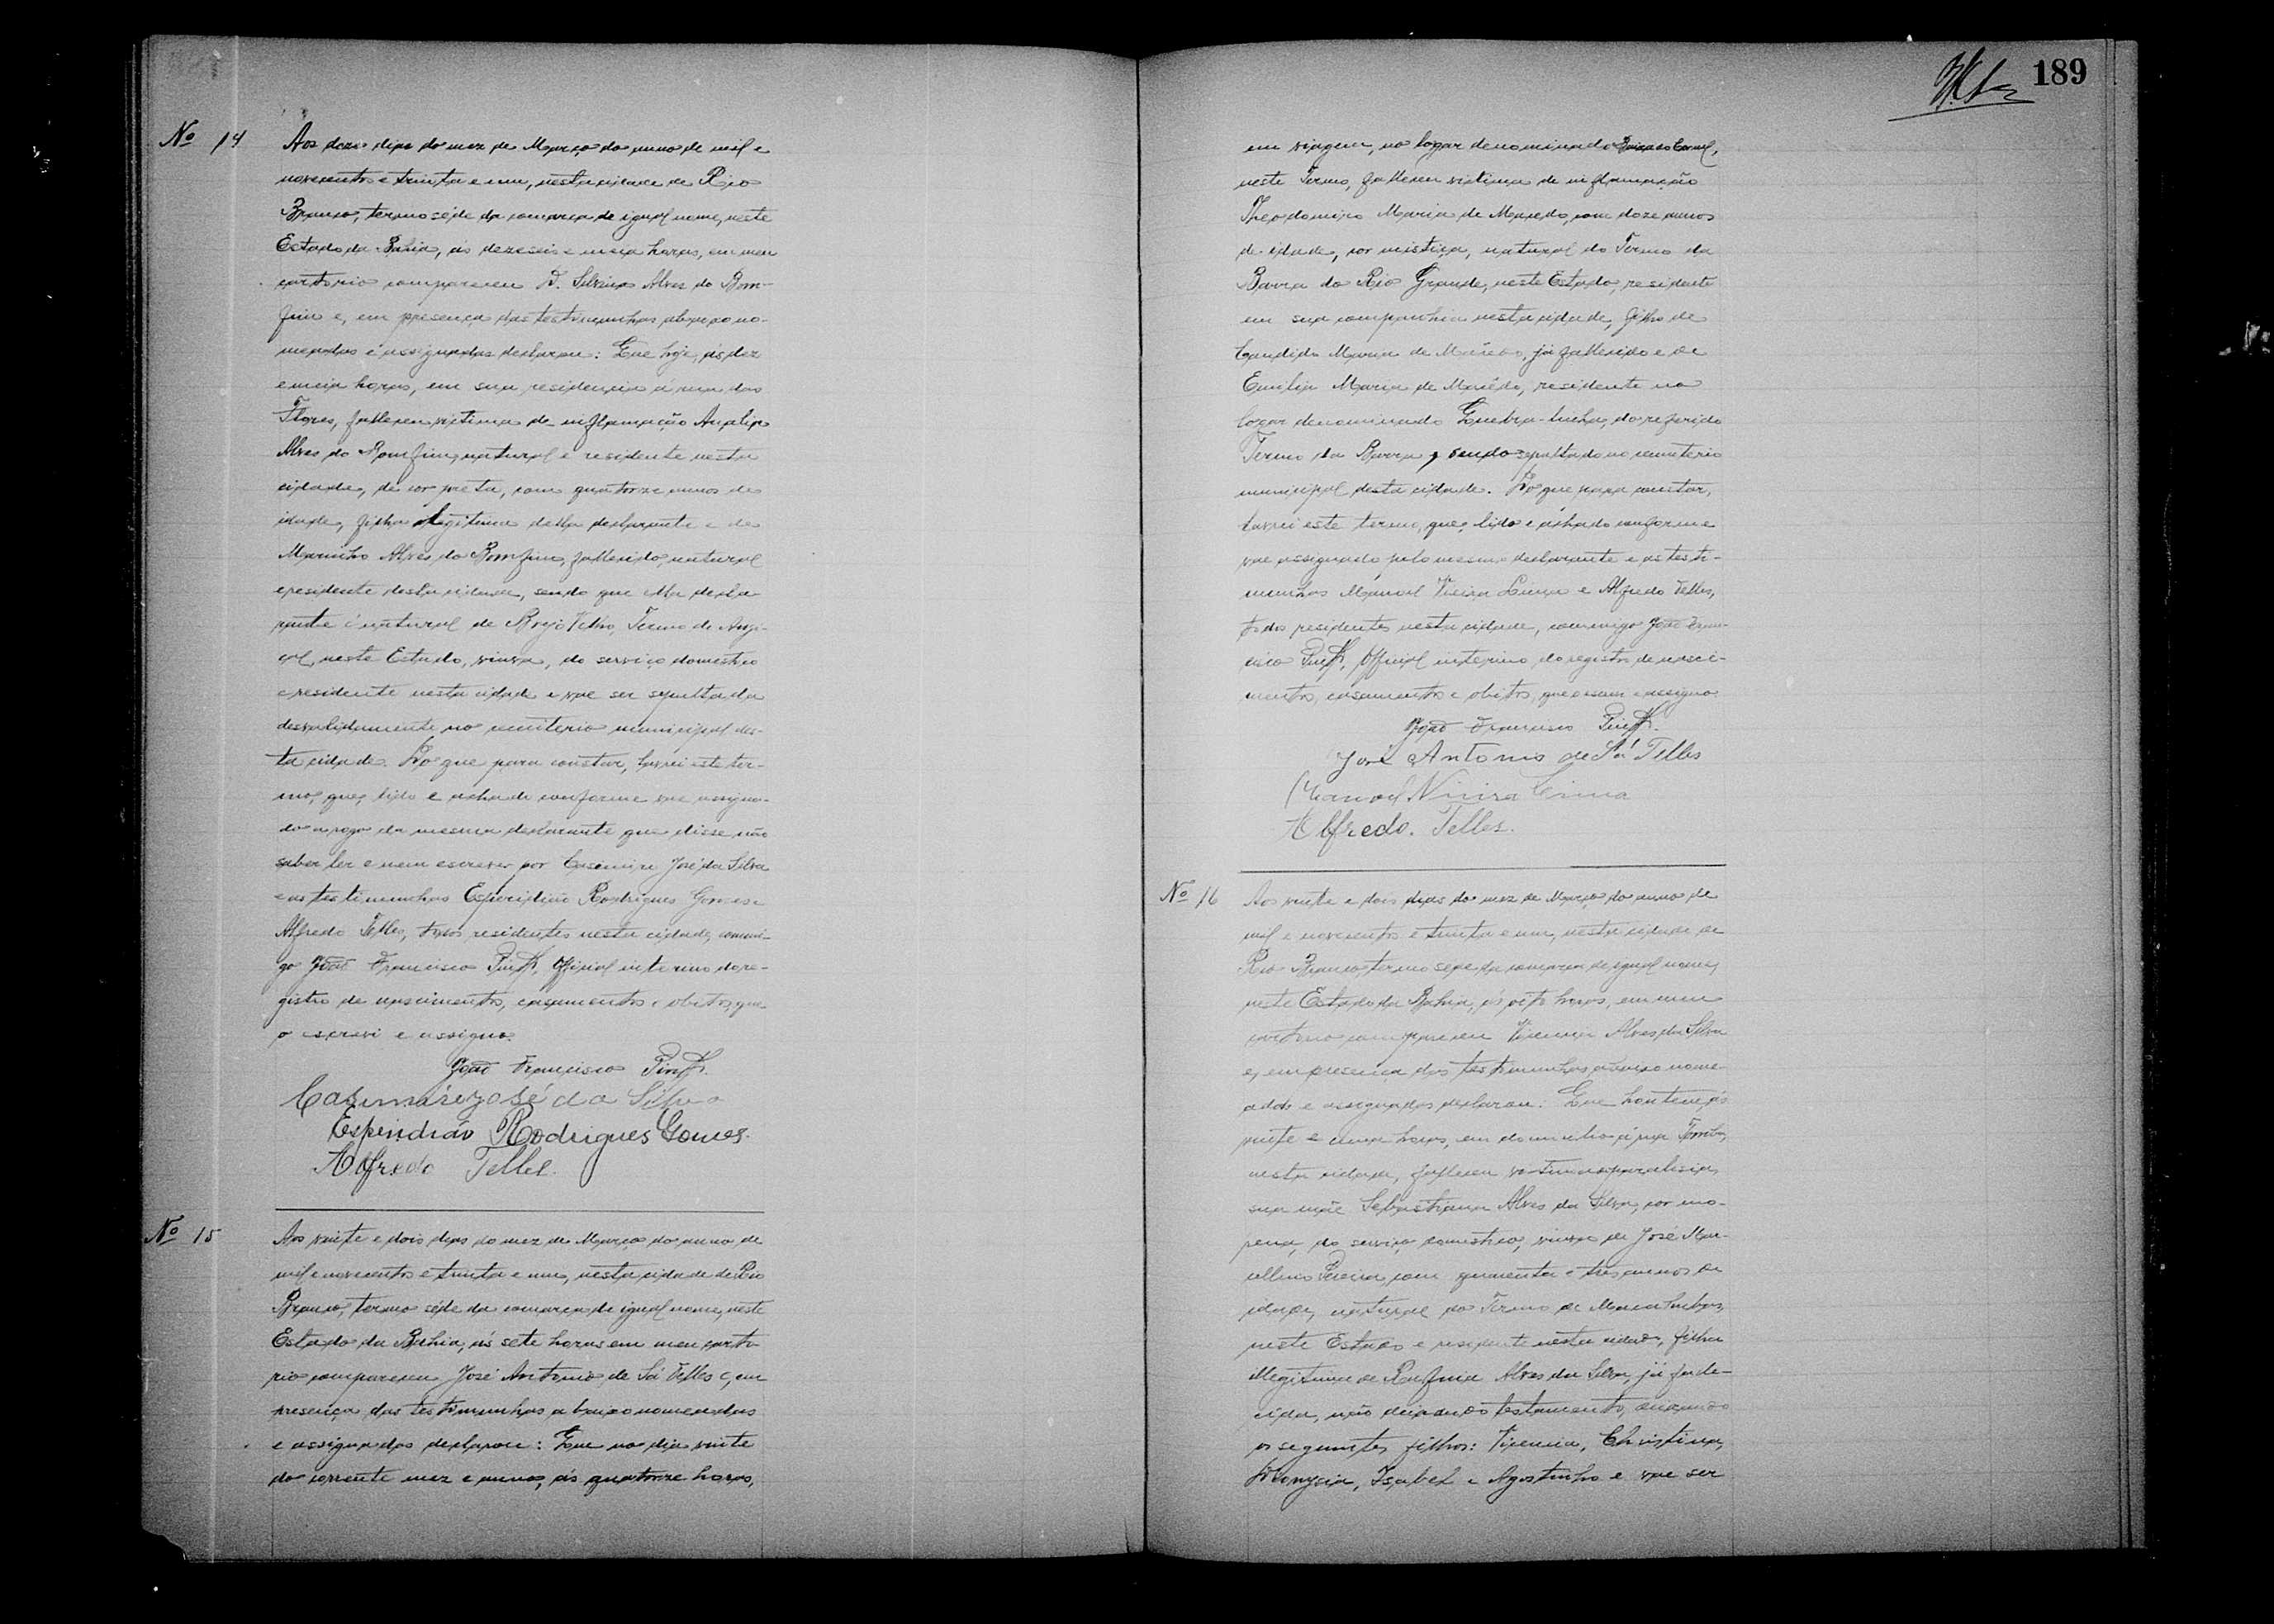 189
Nº 14 Aos doze dias do mez de Março do anno de mil e
novecentos e trinta e um, nesta cidade de Rio
Branco, termo séde da comarca de igual nome, neste
Estado da Bahia, ás dezeseis e meia horas, em meu
cartorio compareceu D. Silvina Alves do Bom-
fim e, em presença das testimunhas abaixo no-
meadas e assignadas declarou: Que hoje, ás dez
e meia horas, em sua residencia á rua das
Flores, falleceu victima de inflamação Analia
Alves do Bomfim, natural e residente nesta
cidade, de cor preta, com quatorze annos de
idade, filha legitima della declarante e de
Marinho Alves do Bomfim, fallecido, natural
e residente desta cidade, sendo que ella decla-
rante é natural de Brejo Velho, Termo de
neste Estado, viuva, do serviço domestico
e residente nesta cidade e vae ser sepultada
no cemiterio municipal des-
ta cidade. Do que para constar, lavrei este ter-
mo, que, lido e achado conforme vae assigna-
do a rogo da mesma declarante que disse não
saber ler e nem escrever por Casimiro José da Silva
e as testimunhas Esperidião Rodrigues Gomes e
Alfredo Telles, todos residentes nesta cidade, commi-
go João Francisco Official interino do re-
gistro de nascimentos, casamentos e obitos, que
o escrevi e assigno.
João Francisco
Casimiro José da Silva
Esperidião Rodrigues Gomes.
Alfredo Telles.
Nº 15 Aos vinte e dois dias do mez de Março do anno de
mil e novecentos e trinta e um, nesta cidade de Rio
Branco, termo séde da comarca de igual nome, neste
Estado da Bahia, ás sete horas em meu carto-
rio compareceu José Antonio de Sá Telles e, em
presença das testimunhas abaixo nomeadas
e assignadas declarou: Que no dia vinte
do corrente mez e anno, ás quatorze horas,
em viagem, no logar denominado
neste Termo, falleceu victima de inflamação
Theodomiro Maria de Macedo, com doze annos
de idade, cor mistiça, natural do Termo da
Barra do Rio Grande, neste Estado, residente
em sua companhia nesta cidade, filho de
Candido Maria de Macêdo, já fallecido e de
Emilia Maria de Macêdo, residente no
logar denominado do referido
Termo da Barra, sendo sepultado no cemiterio
municipal desta cidade. Do que para constar,
lavrei este termo, que, lido e achado conforme
vae assignado pelo mesmo declarante e as testi-
munhas Manoel Vieira Lima e Alfredo Telles,
todos residentes nesta cidade, commigo João Fran-
cisco Official interino do registro de nasci-
mentos, casamentos e obitos, que o escrevi e assigno.
João Francisco
José Antonio de Sá Telles
Manoel Vieira Lima
Alfredo. Telles.
Nº 16 Aos vinte e dois dias do mez de Março do anno de
mil e novecentos e trinta e um, nesta cidade de
Rio Branco, termo séde da comarca de igual nome,
neste Estado da Bahia, ás oito horas, em meu
cartorio compareceu Vicencia Alves da Silva
e, em presença das testimunhas abaixo nome-
adas e assignadas declarou: Que hontem, ás
vinte e uma horas, em domicilio á rua
nesta cidade, falleceu victima paralisia,
sua mãe Sebastiana Alves da Silva, cor mo-
rena, do serviço domestico, viuva de José Mar-
cellino Pereira, com quarenta e tres annos de
idade, natural do Termo de Macahubas,
neste Estado e residente nesta cidade, filha
illegitima de Rufina Alves da Silva, já falle-
cida, não deixando testamento, deixando
os seguintes filhos: Vicencia, Christina,
Dionysia, Isabel e Agostinho e vae ser